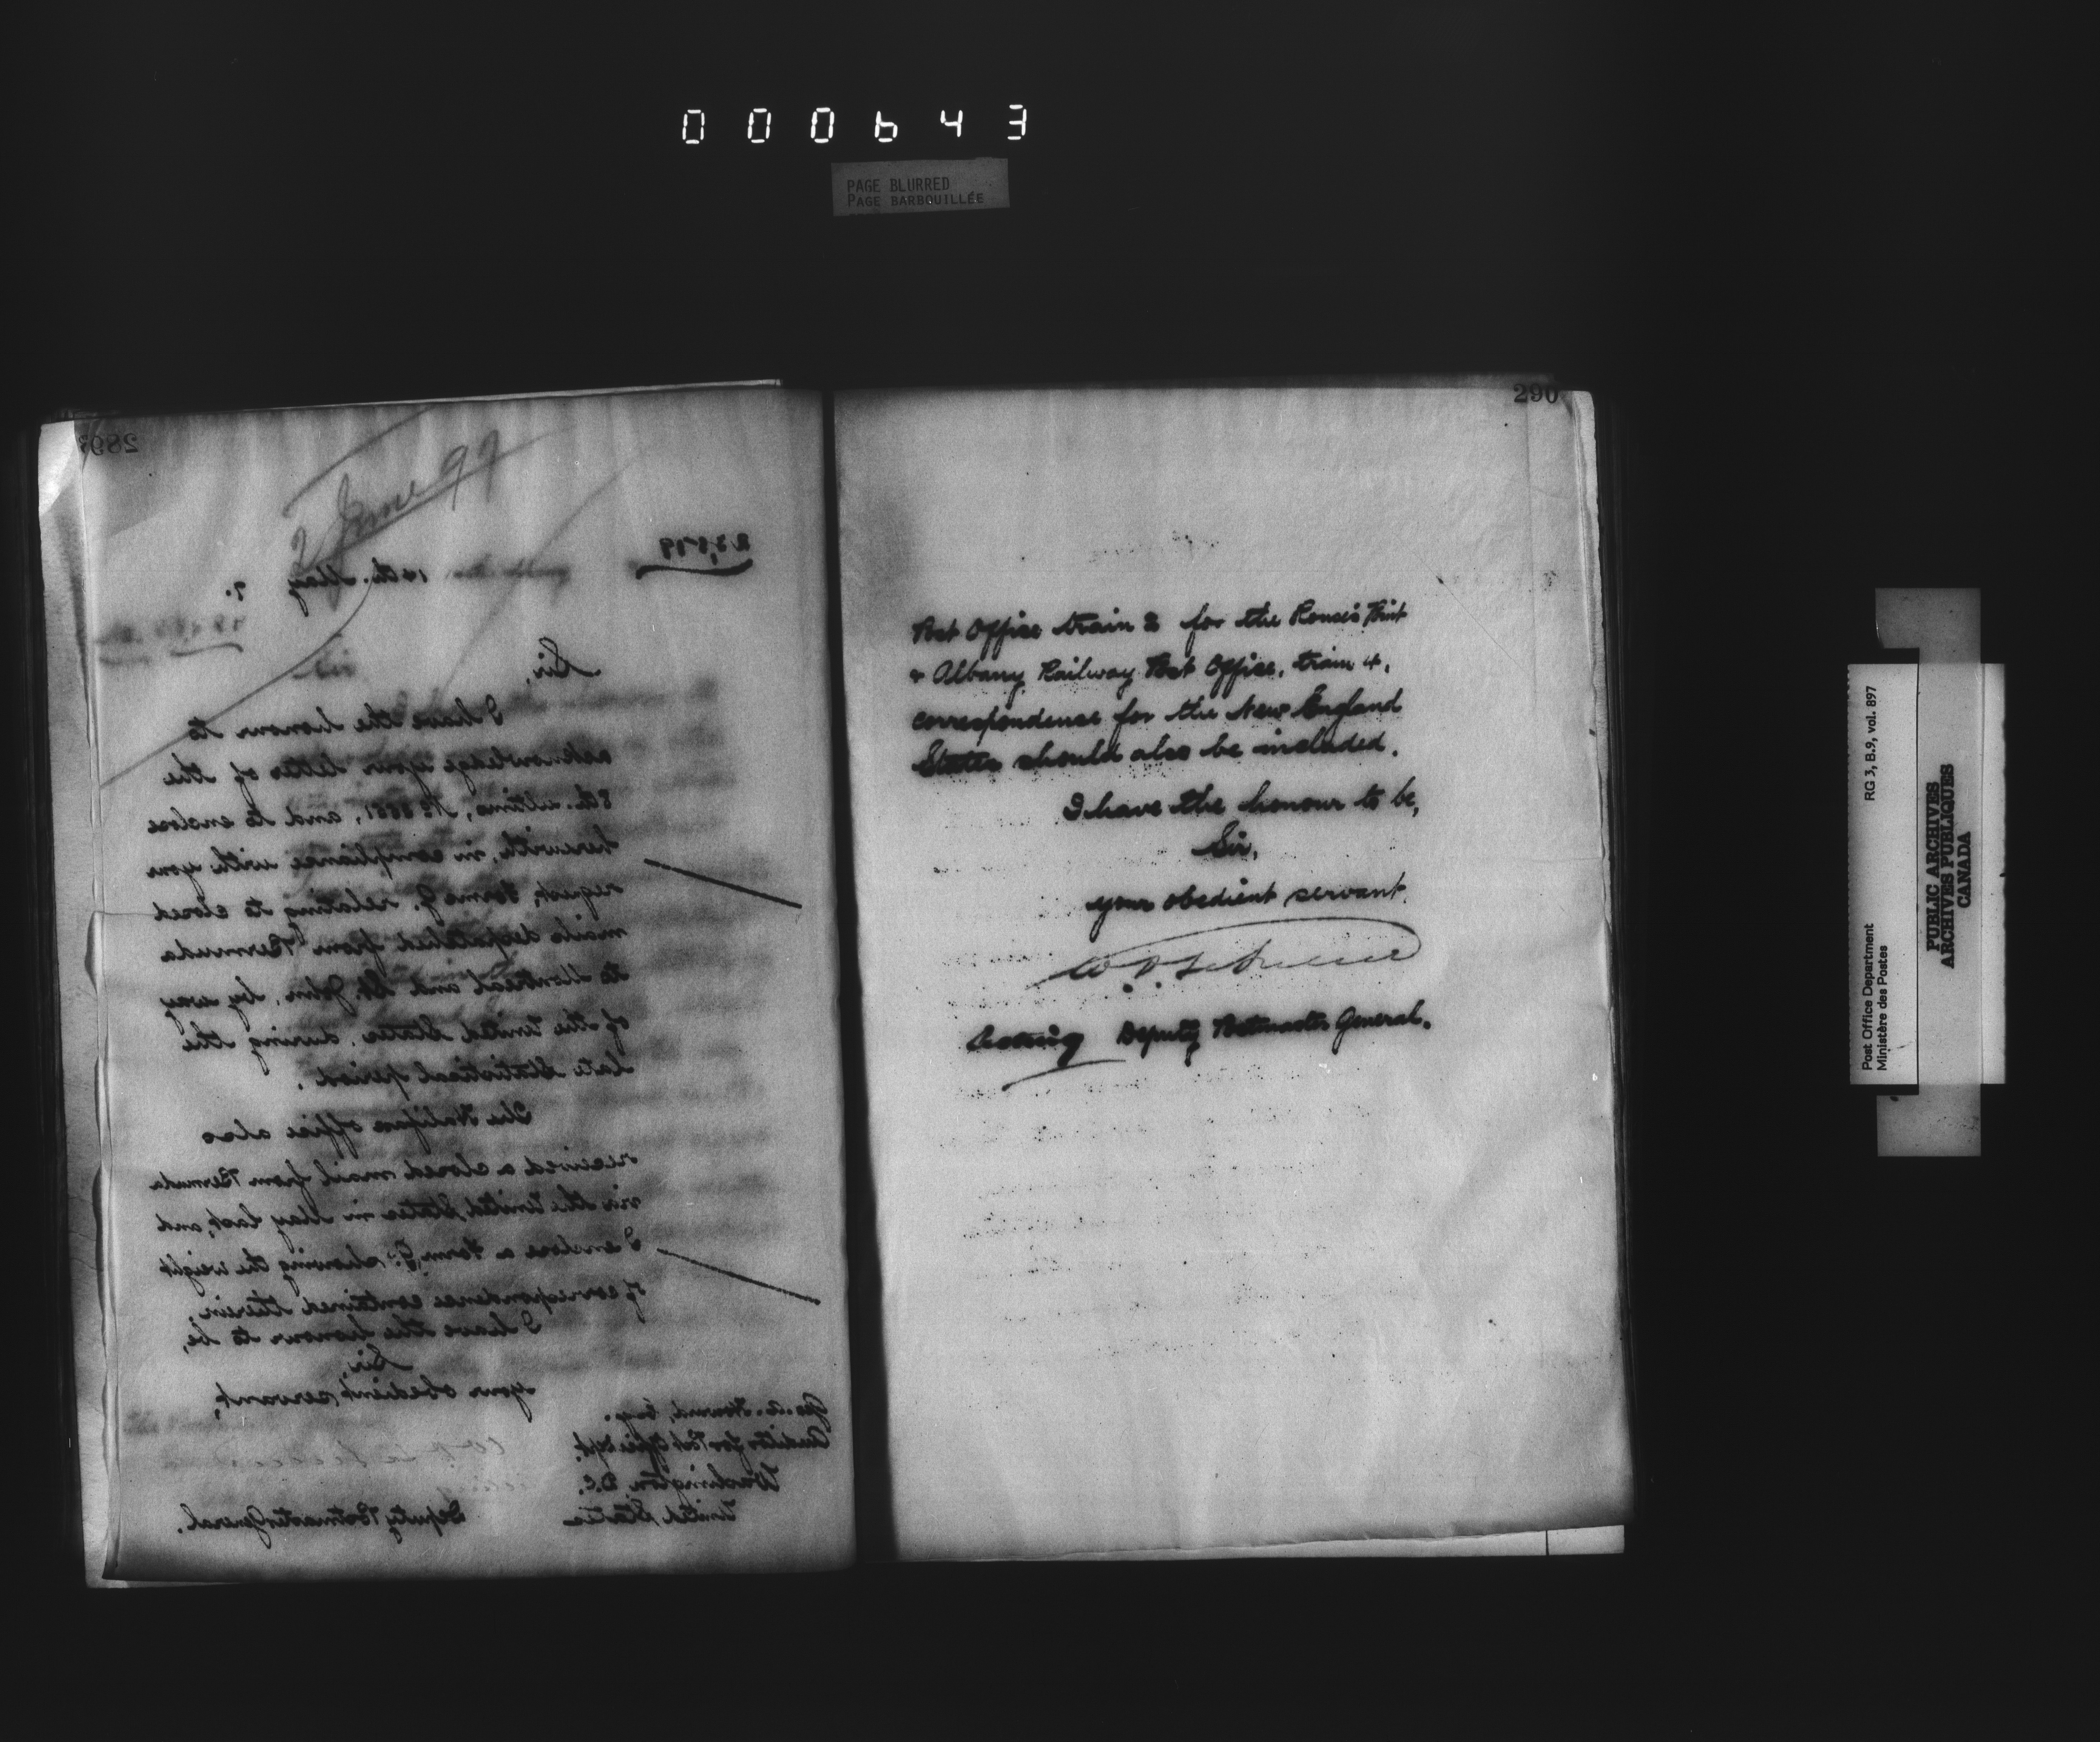 000643
PAGE BLURRED
PAGE BARBOUILLÉE
289
2 June 97
23,579
14th. May, 7.
Sir,
I have the honour to
acknowledge your letter of the
8th. ultimo, No and to enclose
herewith, in compliance with your
request, Forms G. relating to closed
mails despatched from Bermuda
to Montreal and St. John, by way
of the United States, during the
late Statistical period.
The Halifax office also
received a closed mail from Bermuda
via the United States in May last, and
I enclose a Form G. showing the weight
of correspondence contained therein.
I have the honour to be,
Sir,
your obedient servant,
Geo. A. Howard, Esq.
Auditor for Post Office Dept.
Washington, D.C.
United States
Deputy Postmaster General.
290
Post Office train 2 for the Rouse's Point
& Albany Railway Post Office, train 4,
correspondence for the New England
States should also be included.
I have the honour to be,
Sir,
your obedient servant.
Acting Deputy Postmaster General.
Post Office Department
Ministère des Postes
RG 3, B.9, vol. 897
PUBLIC ARCHIVES
ARCHIVES PUBLIQUES
CANADA